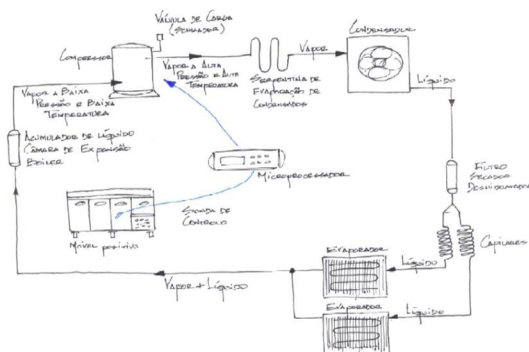 VÁLVULA DE CARGA
(SCHRADER)
COMPRESSOR
VAPOR A ALTA
PRESSÃO E ALTA
TEMPERATURA
SERPENTINA DE
EVAPORAÇÃO DE
CONDENSADOS
VAPOR
CONDENSADOR
LÍQUIDO
VAPOR A BAIXA
PRESSÃO E BAIXA
TEMPERATURA
ACUMULADOR DE LÍQUIDO
CÂMARA DE EXPANSÃO
BOILER
MICROPROCESSADOR
SONDA DE
CONTROLO
MÓVEL positivo
FILTRO
SECADOR
CAPILARES
EVAPORADOR
LÍQUIDO
VAPOR + LÍQUIDO
EVAPORADOR
LÍQUIDO